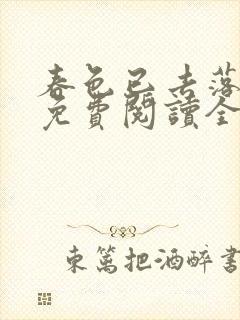 春色已去落
免費閱讀全
東篱把酒醉書